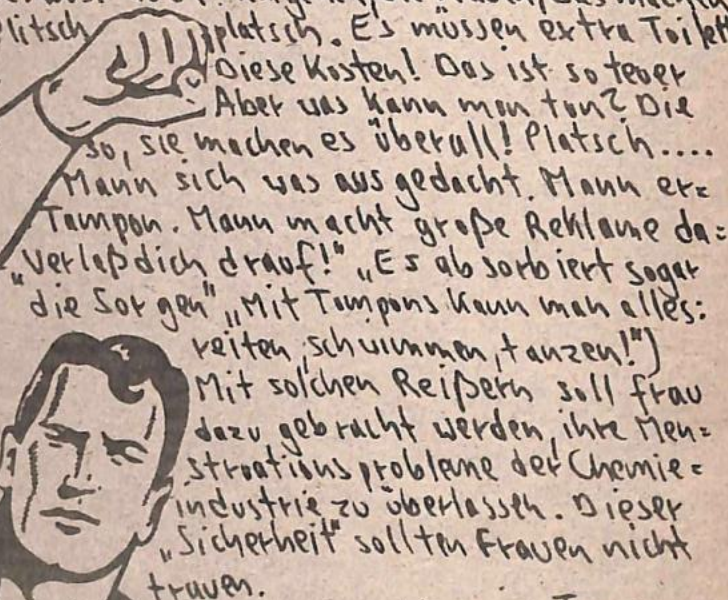 platsch. Es müssen extra
Diese Kosten! Das ist so teuer
Aber was kann man tun? Die
so, sie machen es überall! Platsch....
Mann sich was ausgedacht. Mann er=
Tampon. Mann macht große Reklame da=
"Verlaß dich drauf!" „Es absorbiert sogar
die Sorgen" „Mit Tampons kann man alles:
reiten, schwimmen, tanzen!")
Mit solchen Reißern soll frau
dazu gebracht werden, ihre Men=
struationsprobleme der Chemie=
industrie zu überlassen. Dieser
„Sicherheit" sollten Frauen nicht
trauen.